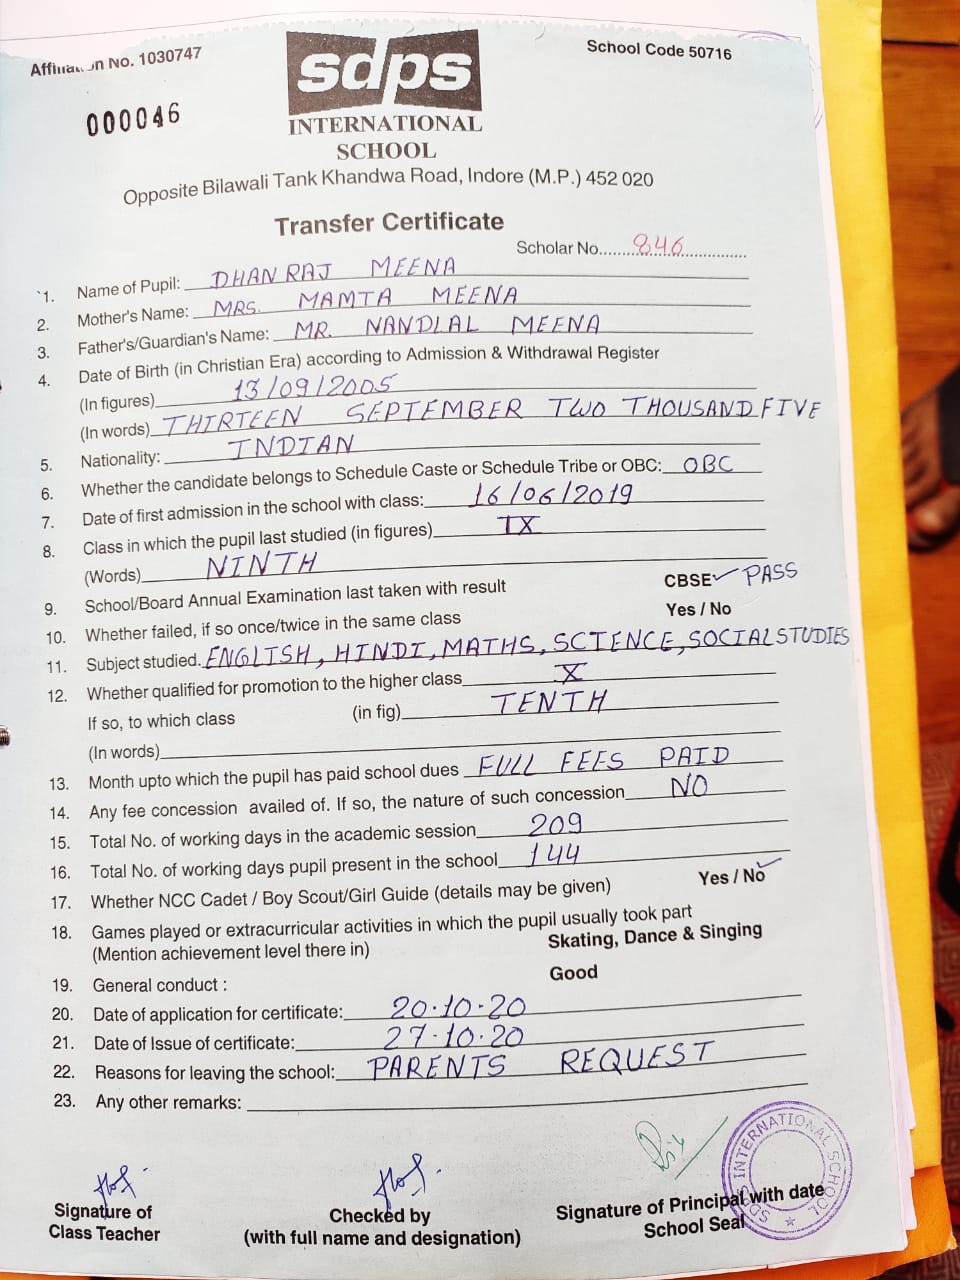 Affiliation No. 1030747
School Code 50716
000046
sdps
INTERNATIONAL
SCHOOL
Opposite Bilawali Tank Khandwa Road, Indore (M.P.) 452 020
Transfer Certificate
Scholar No. 846
1. Name of Pupil: DHANRAJ MEENA
2. Mother's Name: MRS. MAMTA MEENA
3. Father's/Guardian's Name: MR. NANDLAL MEENA
4. Date of Birth (in Christian Era) according to Admission & Withdrawal Register
(In figures) 13/09/2005
(In words) THIRTEEN SEPTEMBER TWO THOUSAND FIVE
5. Nationality: INDIAN
6. Whether the candidate belongs to Schedule Caste or Schedule Tribe or OBC: OBC
7. Date of first admission in the school with class: 16/06/2019
8. Class in which the pupil last studied (in figures) IX
(Words) NINTH
9. School/Board Annual Examination last taken with result CBSE ✓ PASS
10. Whether failed, if so once/twice in the same class Yes / No
11. Subject studied. ENGLISH, HINDI, MATHS, SCIENCE, SOCIAL STUDIES
12. Whether qualified for promotion to the higher class X
If so, to which class (in fig) TENTH
(In words)
13. Month upto which the pupil has paid school dues FULL FEES PAID
14. Any fee concession availed of. If so, the nature of such concession NO
15. Total No. of working days in the academic session 209
16. Total No. of working days pupil present in the school 144
17. Whether NCC Cadet / Boy Scout/Girl Guide (details may be given) Yes / No ✓
18. Games played or extracurricular activities in which the pupil usually took part
(Mention achievement level there in) Skating, Dance & Singing
19. General conduct : Good
20. Date of application for certificate: 20.10.20
21. Date of Issue of certificate: 27.10.20
22. Reasons for leaving the school: PARENTS REQUEST
23. Any other remarks:
Signature of
Class Teacher
Checked by
(with full name and designation)
Signature of Principal with date
School Seal
INTERNATIONAL SCHOOL